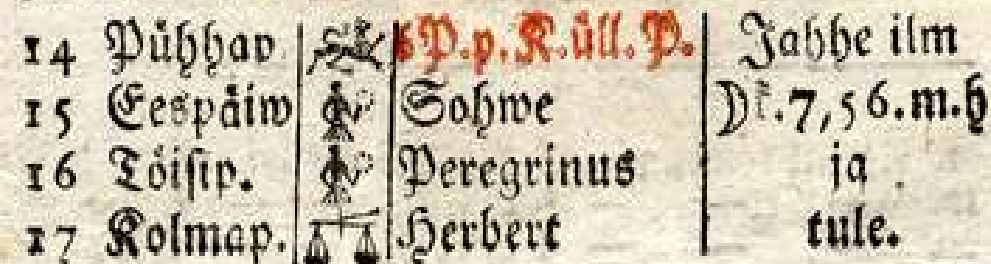 14 Pühhap. 6 P. p. K. üll. P. Jahhe ilm
15 Eespäiw Sohwe ☽ 7,56.m.h
16 Töisip. Peregrinus ja
17 Kolmap. Herbert tule.